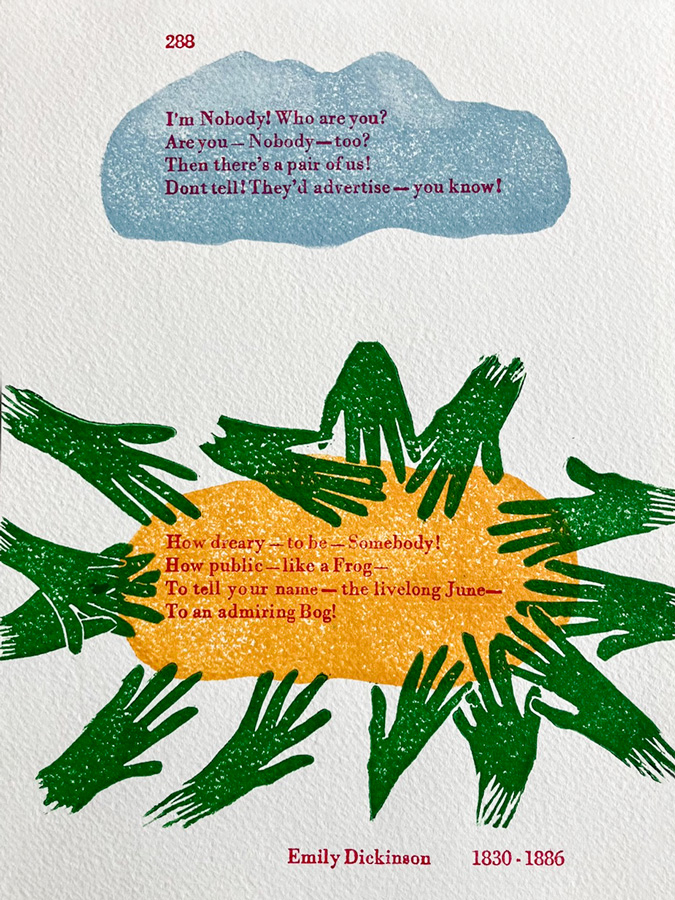 288
I'm Nobody! Who are you?
Are you – Nobody—too?
Then there's a pair of us!
Dont tell! They'd advertise—you know!
How dreary—to be—Somebody!
How public—like a Frog—
To tell your name—the livelong June—
To an admiring Bog!
Emily Dickinson 1830-1886